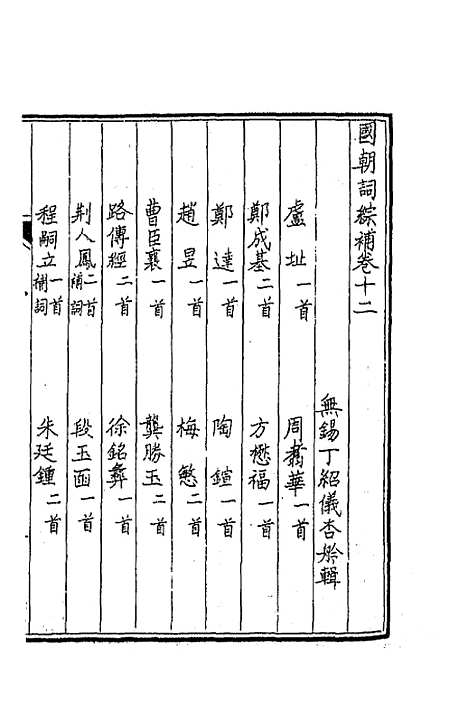 國朝詞綜補卷十二
無錫丁紹儀杏舲輯
盧址一首　周翥華一首
鄭成基二首　方懋福一首
鄭達一首　陶鎧一首
趙昱一首　梅慜二首
曹臣襄一首　龔勝玉二首
路傳經二首　徐銘彝一首
荆人鳳二首補詞　段玉函一首
程嗣立一首補詞　朱廷鍾二首